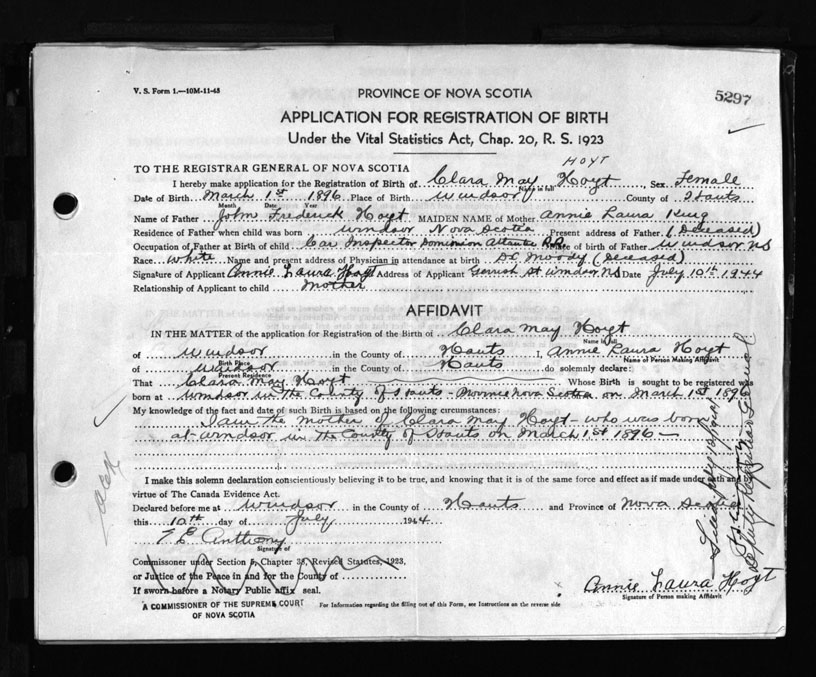 V. S. Form 1.—10M-11-43
PROVINCE OF NOVA SCOTIA
5297
APPLICATION FOR REGISTRATION OF BIRTH
Under the Vital Statistics Act, Chap. 20, R. S. 1923
HOYT
TO THE REGISTRAR GENERAL OF NOVA SCOTIA
I hereby make application for the Registration of Birth of Clara May Hoyt, Sex Female
Name in full
Date of Birth March 1st 1896 Place of Birth Windsor County of Hants
Month Date Year
Name of Father John Frederick Hoyt MAIDEN NAME of Mother Annie Laura King
Residence of Father when child was born Windsor Nova Scotia Present address of Father (Deceased)
Occupation of Father at Birth of child Car Inspector Dominion Atlantic R.R. Place of birth of Father Windsor NS
Race White Name and present address of Physician in attendance at birth Dr Moody (Deceased)
Signature of Applicant Annie Laura Hoyt Address of Applicant Gerrish St Windsor NS Date July 10th 1944
Relationship of Applicant to child Mother
AFFIDAVIT
IN THE MATTER of the application for Registration of the Birth of Clara May Hoyt
Name in full
of Windsor in the County of Hants I, Annie Laura Hoyt
Birth Place Name of Person Making Affidavit
of Windsor in the County of Hants do solemnly declare:
Present Residence
That Clara May Hoyt Whose Birth is sought to be registered was
born at Windsor in the County of Hants - Province Nova Scotia on March 1st 1896
My knowledge of the fact and date of such Birth is based on the following circumstances:
I am the mother of Clara May Hoyt who was born
at Windsor in the County of Hants on March 1st 1896
I make this solemn declaration conscientiously believing it to be true, and knowing that it is of the same force and effect as if made under oath and by
virtue of The Canada Evidence Act.
Declared before me at Windsor in the County of Hants and Province of Nova Scotia
this 10th day of July 1944
E E Anthony
Signature of
Commissioner under Section 5, Chapter 38, Revised Statutes, 1923,
or Justice of the Peace in and for the County of
If sworn before a Notary Public affix seal.
Annie Laura Hoyt
Signature of Person making Affidavit
A COMMISSIONER OF THE SUPREME COURT
OF NOVA SCOTIA
For Information regarding the filling out of this Form, see Instructions on the reverse side
Deputy Registrar General